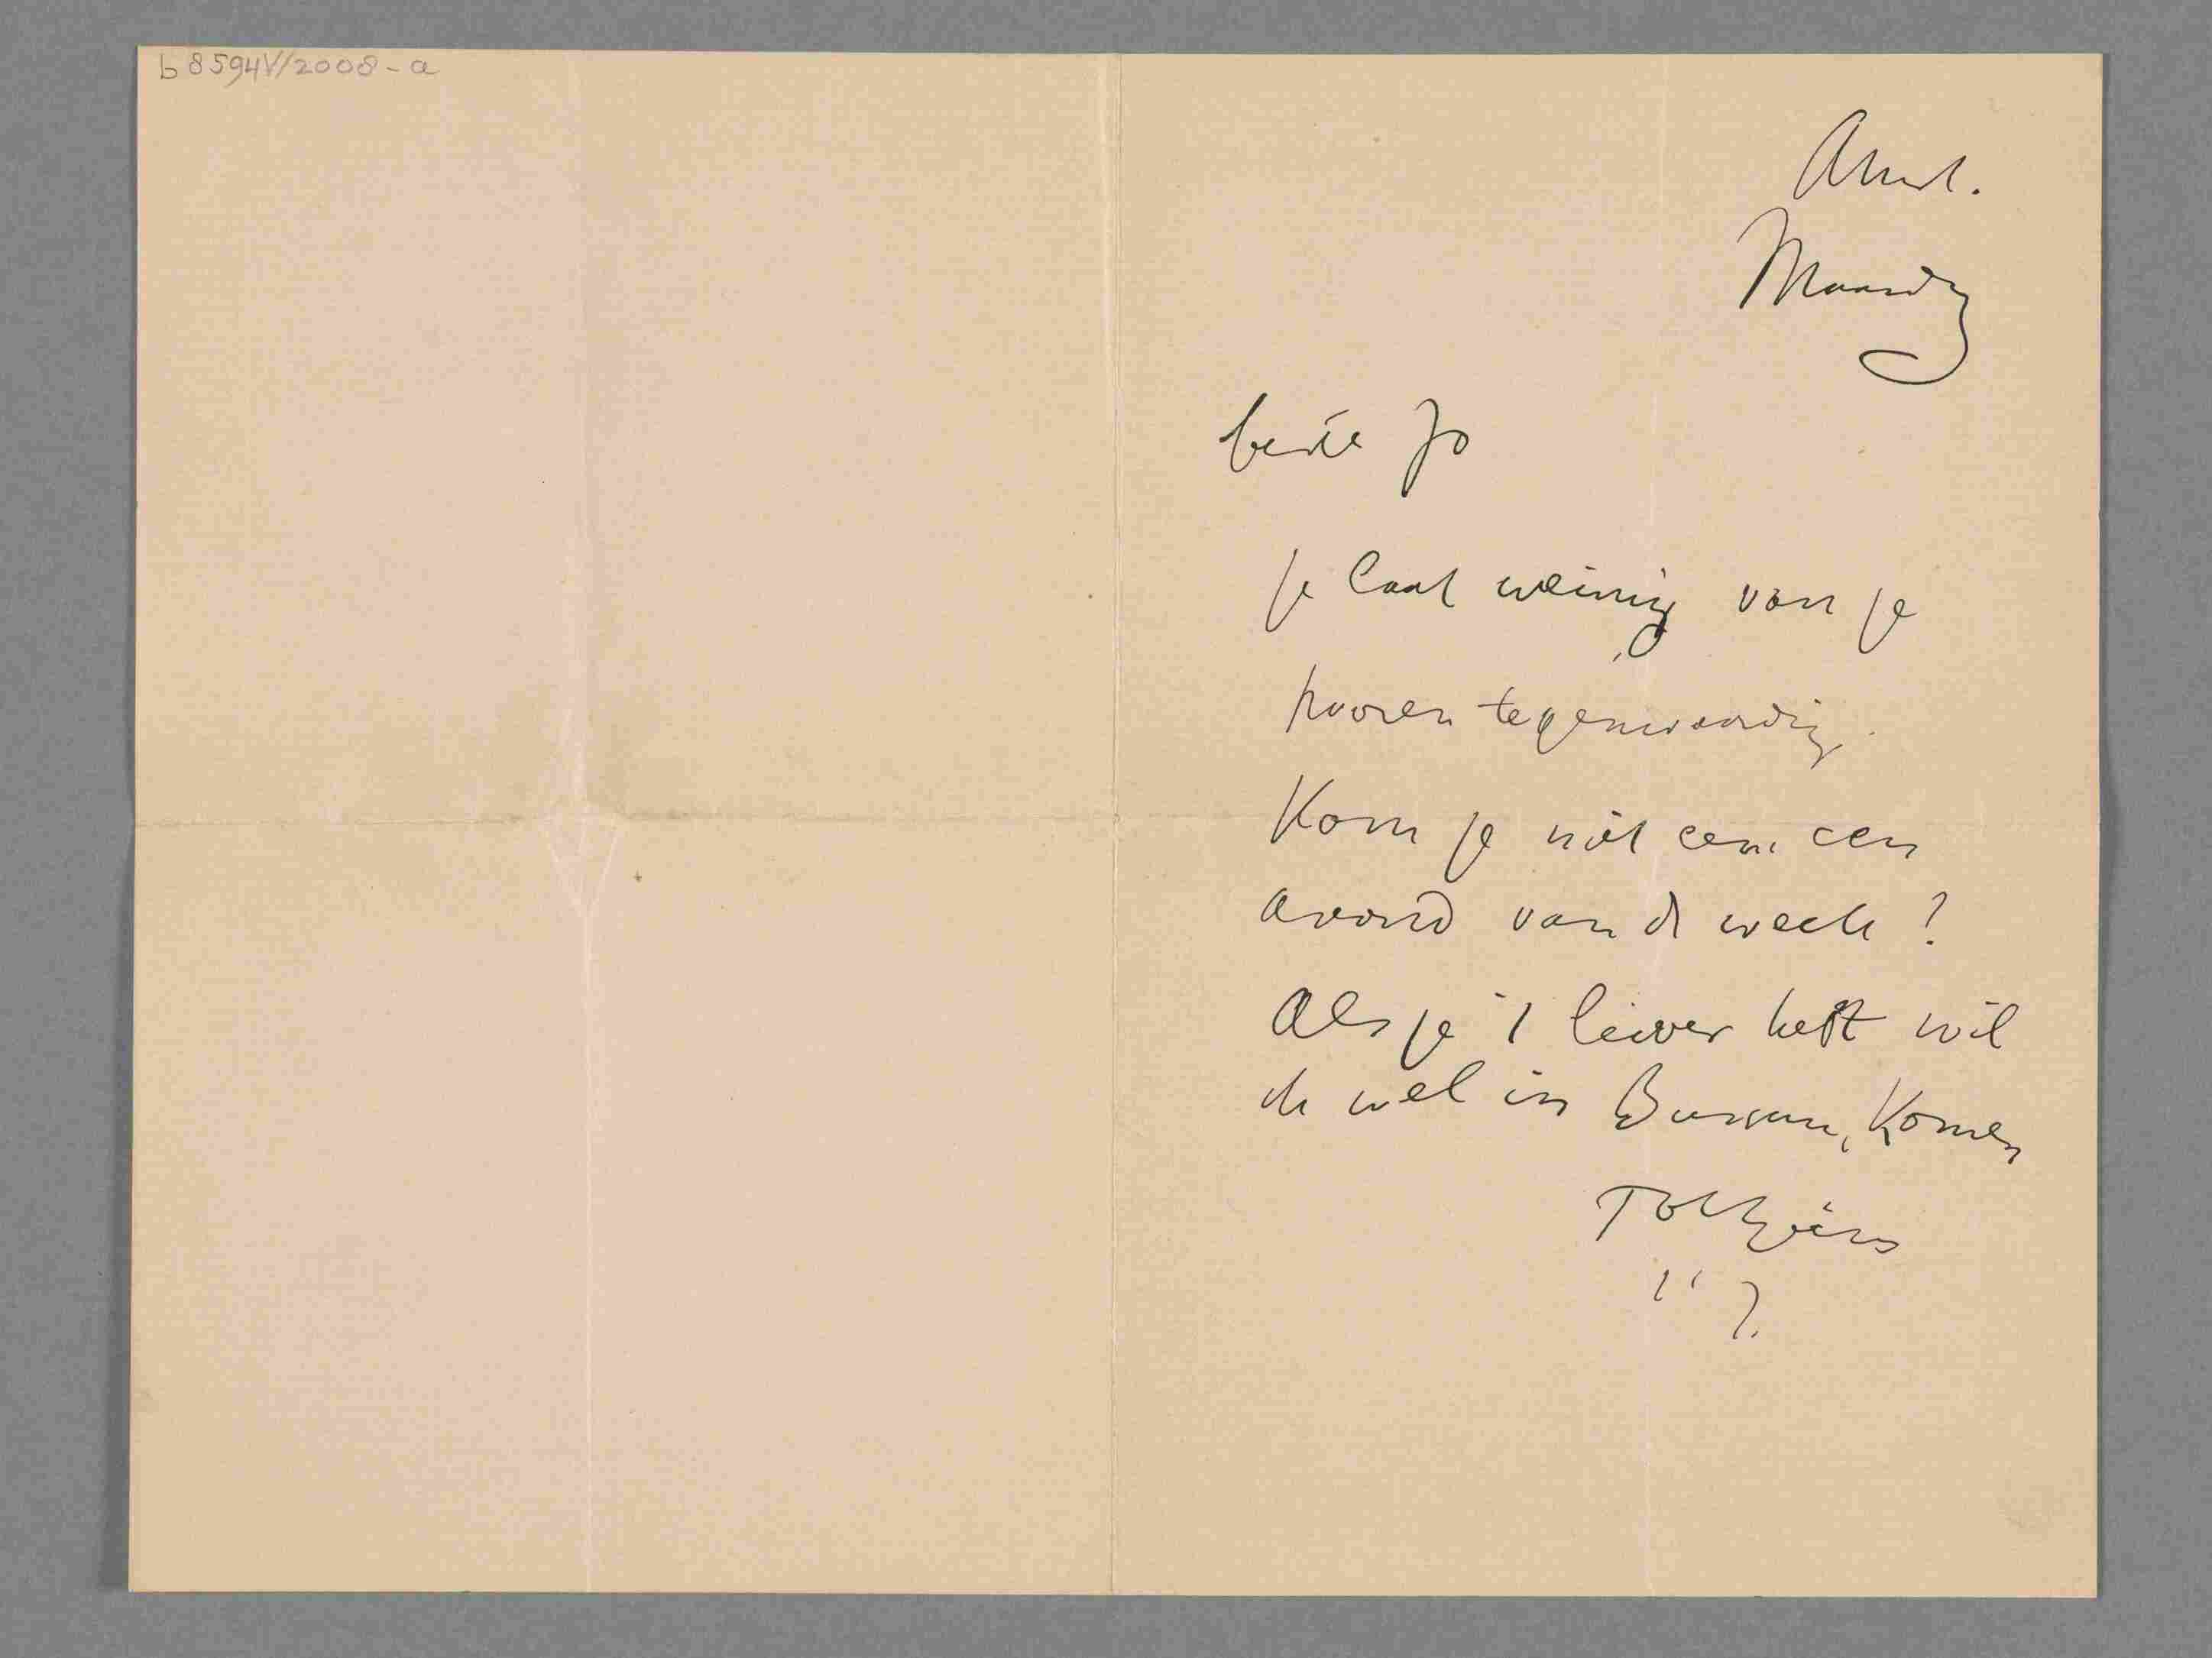 b8594V/2008-a
Amst.
Maandag
beste Jo
je laat weinig van je
hooren tegenwoordig.
Kom je niet eens een
avond van de week?
Als je 't liever hebt wil
ik wel in Bussum, komen
Tot ziens